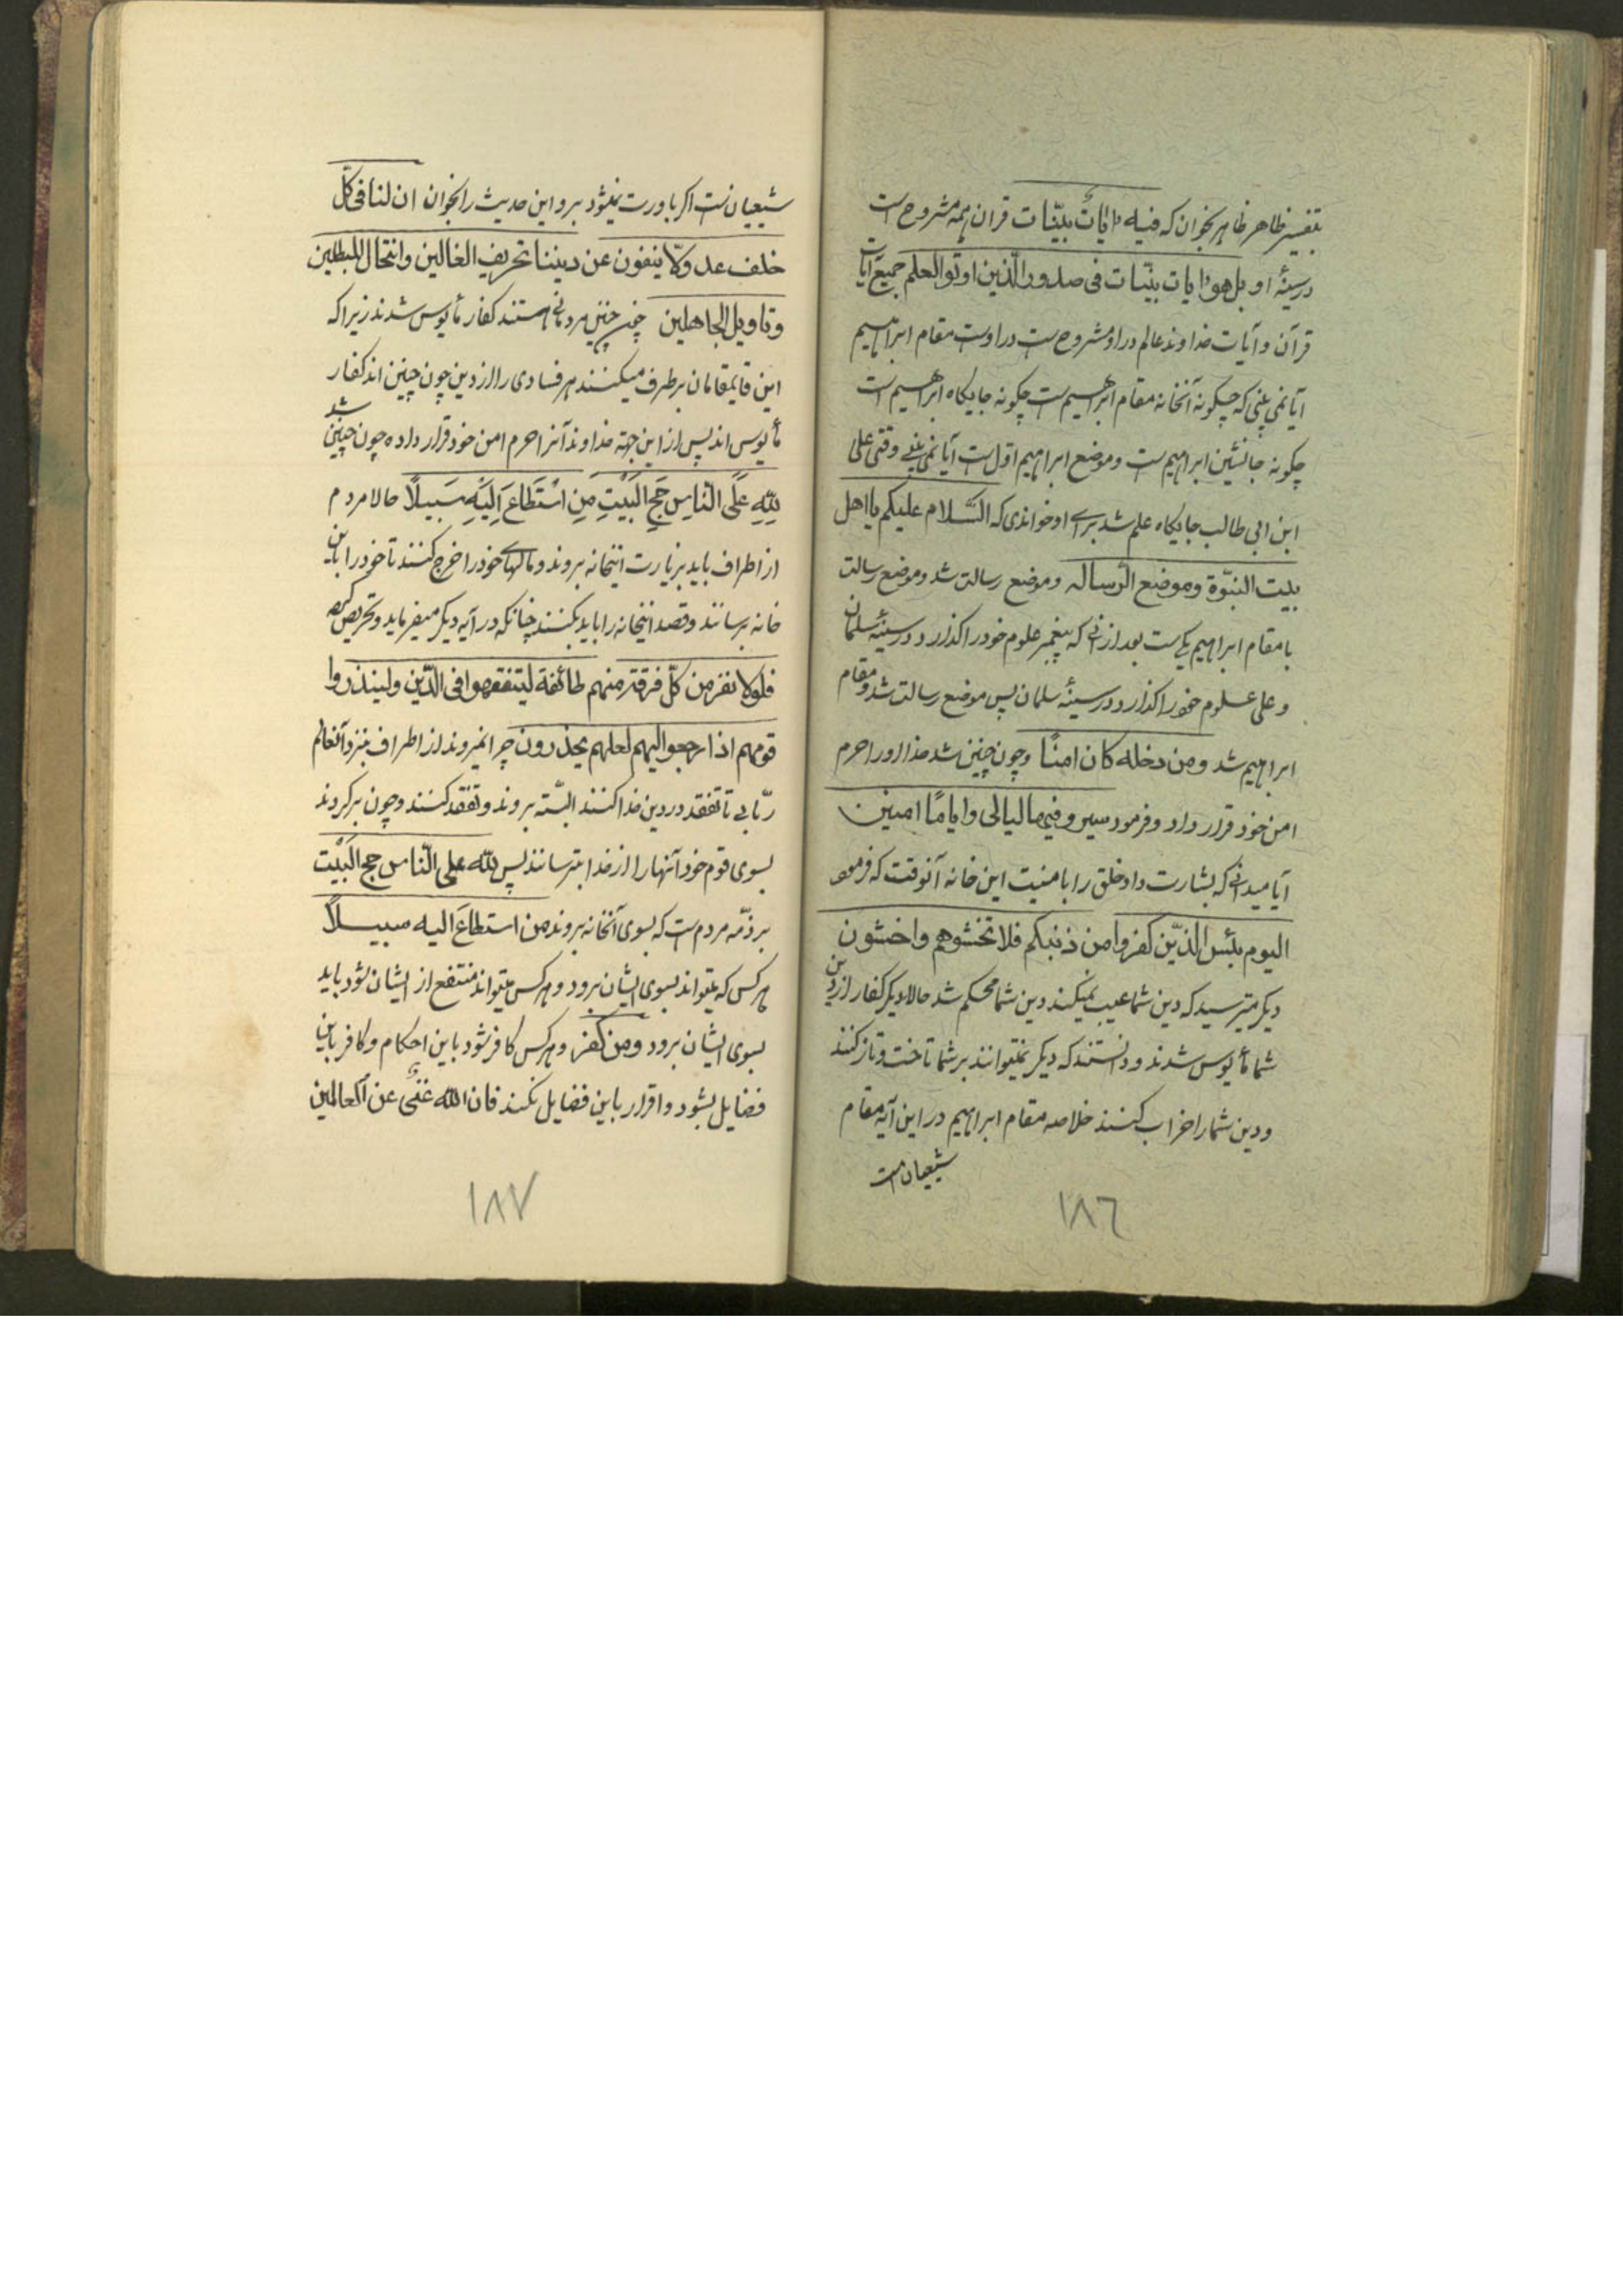 بتفسیر ظاهر ظاهر بخوان که فیه ایاتٌ بیّنات قران همه مشروح است
در سینهٔ او بل هو ایات بیّنات فی صدور الّذین اوتو العلم جمیع آیات
قرآن و آیات خداوند عالم در او مشروح ست در اوست مقام ابراهیم
آیا نمی بینی که چگونه آنخانه مقام ابراهیم ست چگونه جایگاه ابراهیم است
چگونه جانشین ابراهیم ست و موضع ابراهیم اوّل ست آیا نمی بینی وقتی علی
ابن ابی طالب جایگاه علم شد برای او خواندی که السّلام علیکم یا اهل
بیت النبّوة و موضع الرّساله و موضع رسالت شد و موضع رسالت
با مقام ابراهیم یکی ست بعد از انی که پیغمبر علوم خود را گذارد در سینهٔ سلمان
و علی علوم خود را گذارد در سینهٔ سلمان پس موضع رسالت شد و مقام
ابراهیم شد و من دخله کان امنًا و چون چنین شد خدا او را حرم
امن خود قرار داد و فرمود سیرو فیها لیالی و ایامًا امنین
آیا میدانی که بشارت داد خلق را بامنیت این خانه آنوقت که فرمود
الیوم یئس الذّین کفروا من دینکم فلا تخشوهم و اخشون
دیگر مترسید که دین شما عیب نمیکند دین شما محکم شد حالا دیگر کفار از دین
شما مأیوس شدند و دانستند که دیگر نمیتوانند بر شما تاخت و تاز کنند
و دین شما را خراب کنند خلاصه مقام ابراهیم در این آیه مقام
شیعیان است
۱۸۶
شیعیان ست اگر باورت نمیشود برو این حدیث را بخوان ان لنا فی کلّ
خلف عدولاّ ینفون عن دیننا تحریف الغالین و انتحال المبطلین
و تاویل الجاهلین چون چنین مردمانی هستند کفار مأیوس شدند زیرا که
این قایمقامان بر طرف میکنند هر فسادی را از دین چون چنین اند کفار
مأیوس اند پس از این جهته خداوند آنرا حرم امن خود قرار داده چون چنین شد
لِلّهِ عَلَی النّاسِ حَجُّ الْبَیْتِ مَنِ اسْتَطَاعَ اِلَیْهِ سَبیلًا حالا مردم
از اطراف باید بزیارت اینخانه بروند و مالهای خود را خرج کنند تا خود را باین
خانه برسانند و قصد اینخانه را باید بکنند چنانکه در آیه دیگر میفرماید و تحریص کرده
فلولا نفر من کلّ فرقة منهم طائفة لیتفقهوا فی الدّین و لینذروا
قومهم اذا رجعوا الیهم لعلهم یحذرون چرا نمیروند از اطراف بنزد آنعالم
ربّانی تا تفقد در دین خدا کنند البّته بروند و تفقد کنند و چون برگردند
بسوی قوم خود آنها را از خدا بترسانند پس للّه علی النّاس حج الْبَیْت
بر ذمّه مردم ست که بسوی آنخانه بروند من استطاعَ الیه سبیلاً
هر کس که میتواند بسوی ایشان برود و هر کس میتواند منتفع از ایشان شود باید
بسوی ایشان برود و من کفر و هر کس کافر شود باین احکام و کافر باین
فضایل بشود و اقرار باین فضایل نکند فان اللّه غنیٌ عن العالمین
۱۸۷